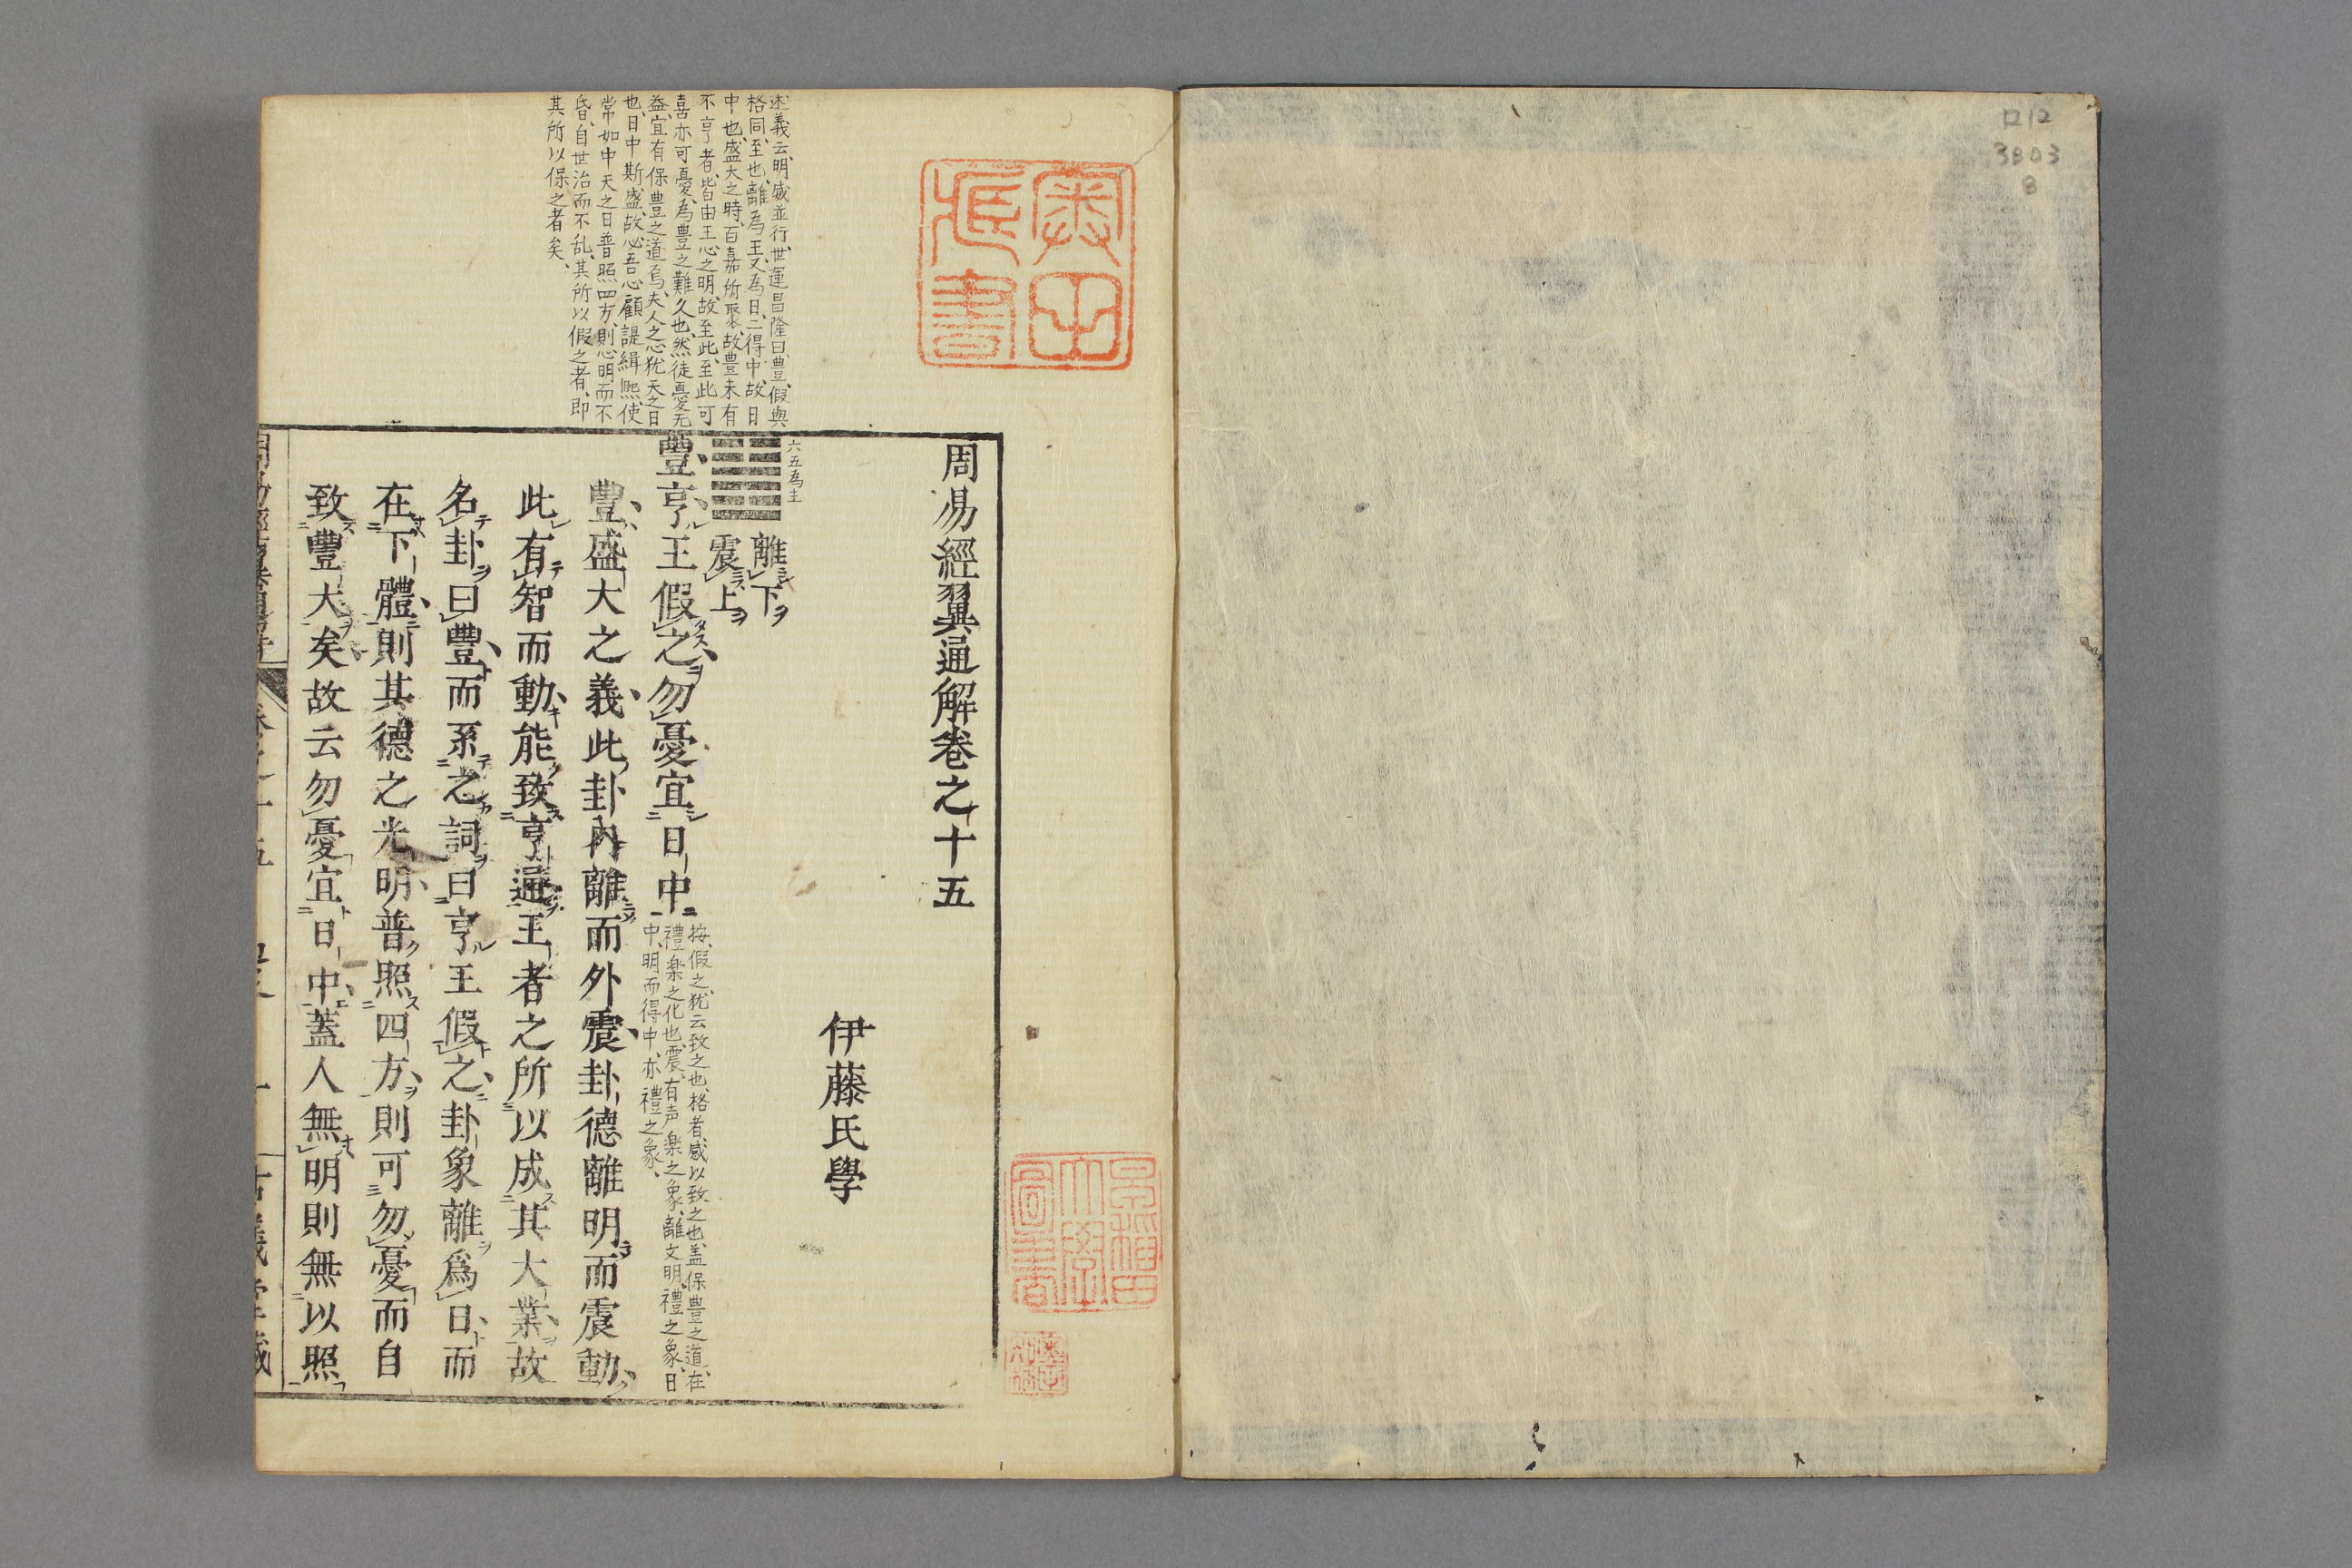 ロ12
3803
8
述義云、明盛並行、世運昌隆曰豊、假與
格同、至也、離為王、又為日、二得中、故日
中也、盛大之時、百嘉所聚、故豊未有
不亨者、皆由王心之明、故至此、至此可
喜亦可憂、為豊之難久也、然徒憂无
益、宜有保豊之道焉、夫人之心犹天之日
也、日中斯盛、故必吾心顧諟緝熙、使
常如中天之日普照四方、則心明而不
昏、自世治而不乱、其所以假之者、即
其所以保之者矣、
周易經翼通解卷之十五
伊藤氏學
六五為主
離下
震上
豐亨王假之勿憂宜日中
按、假之、犹云致之也、格者感以致之也、盖保豊之道、在
禮楽之化也、震、有声楽之象、離文明、禮之象、日
中、明而得中、亦禮之象、
豐盛大之義此卦內離而外震卦德離明而震動
此有智而動能致亨通王者之所以成其大業故
名卦曰豐而系之詞曰亨王假之卦象離爲日而
在下體則其德之光明普照四方則可勿憂而自
致豐大矣故云勿憂宜日中蓋人無明則無以照
早稲田
大學
圖書